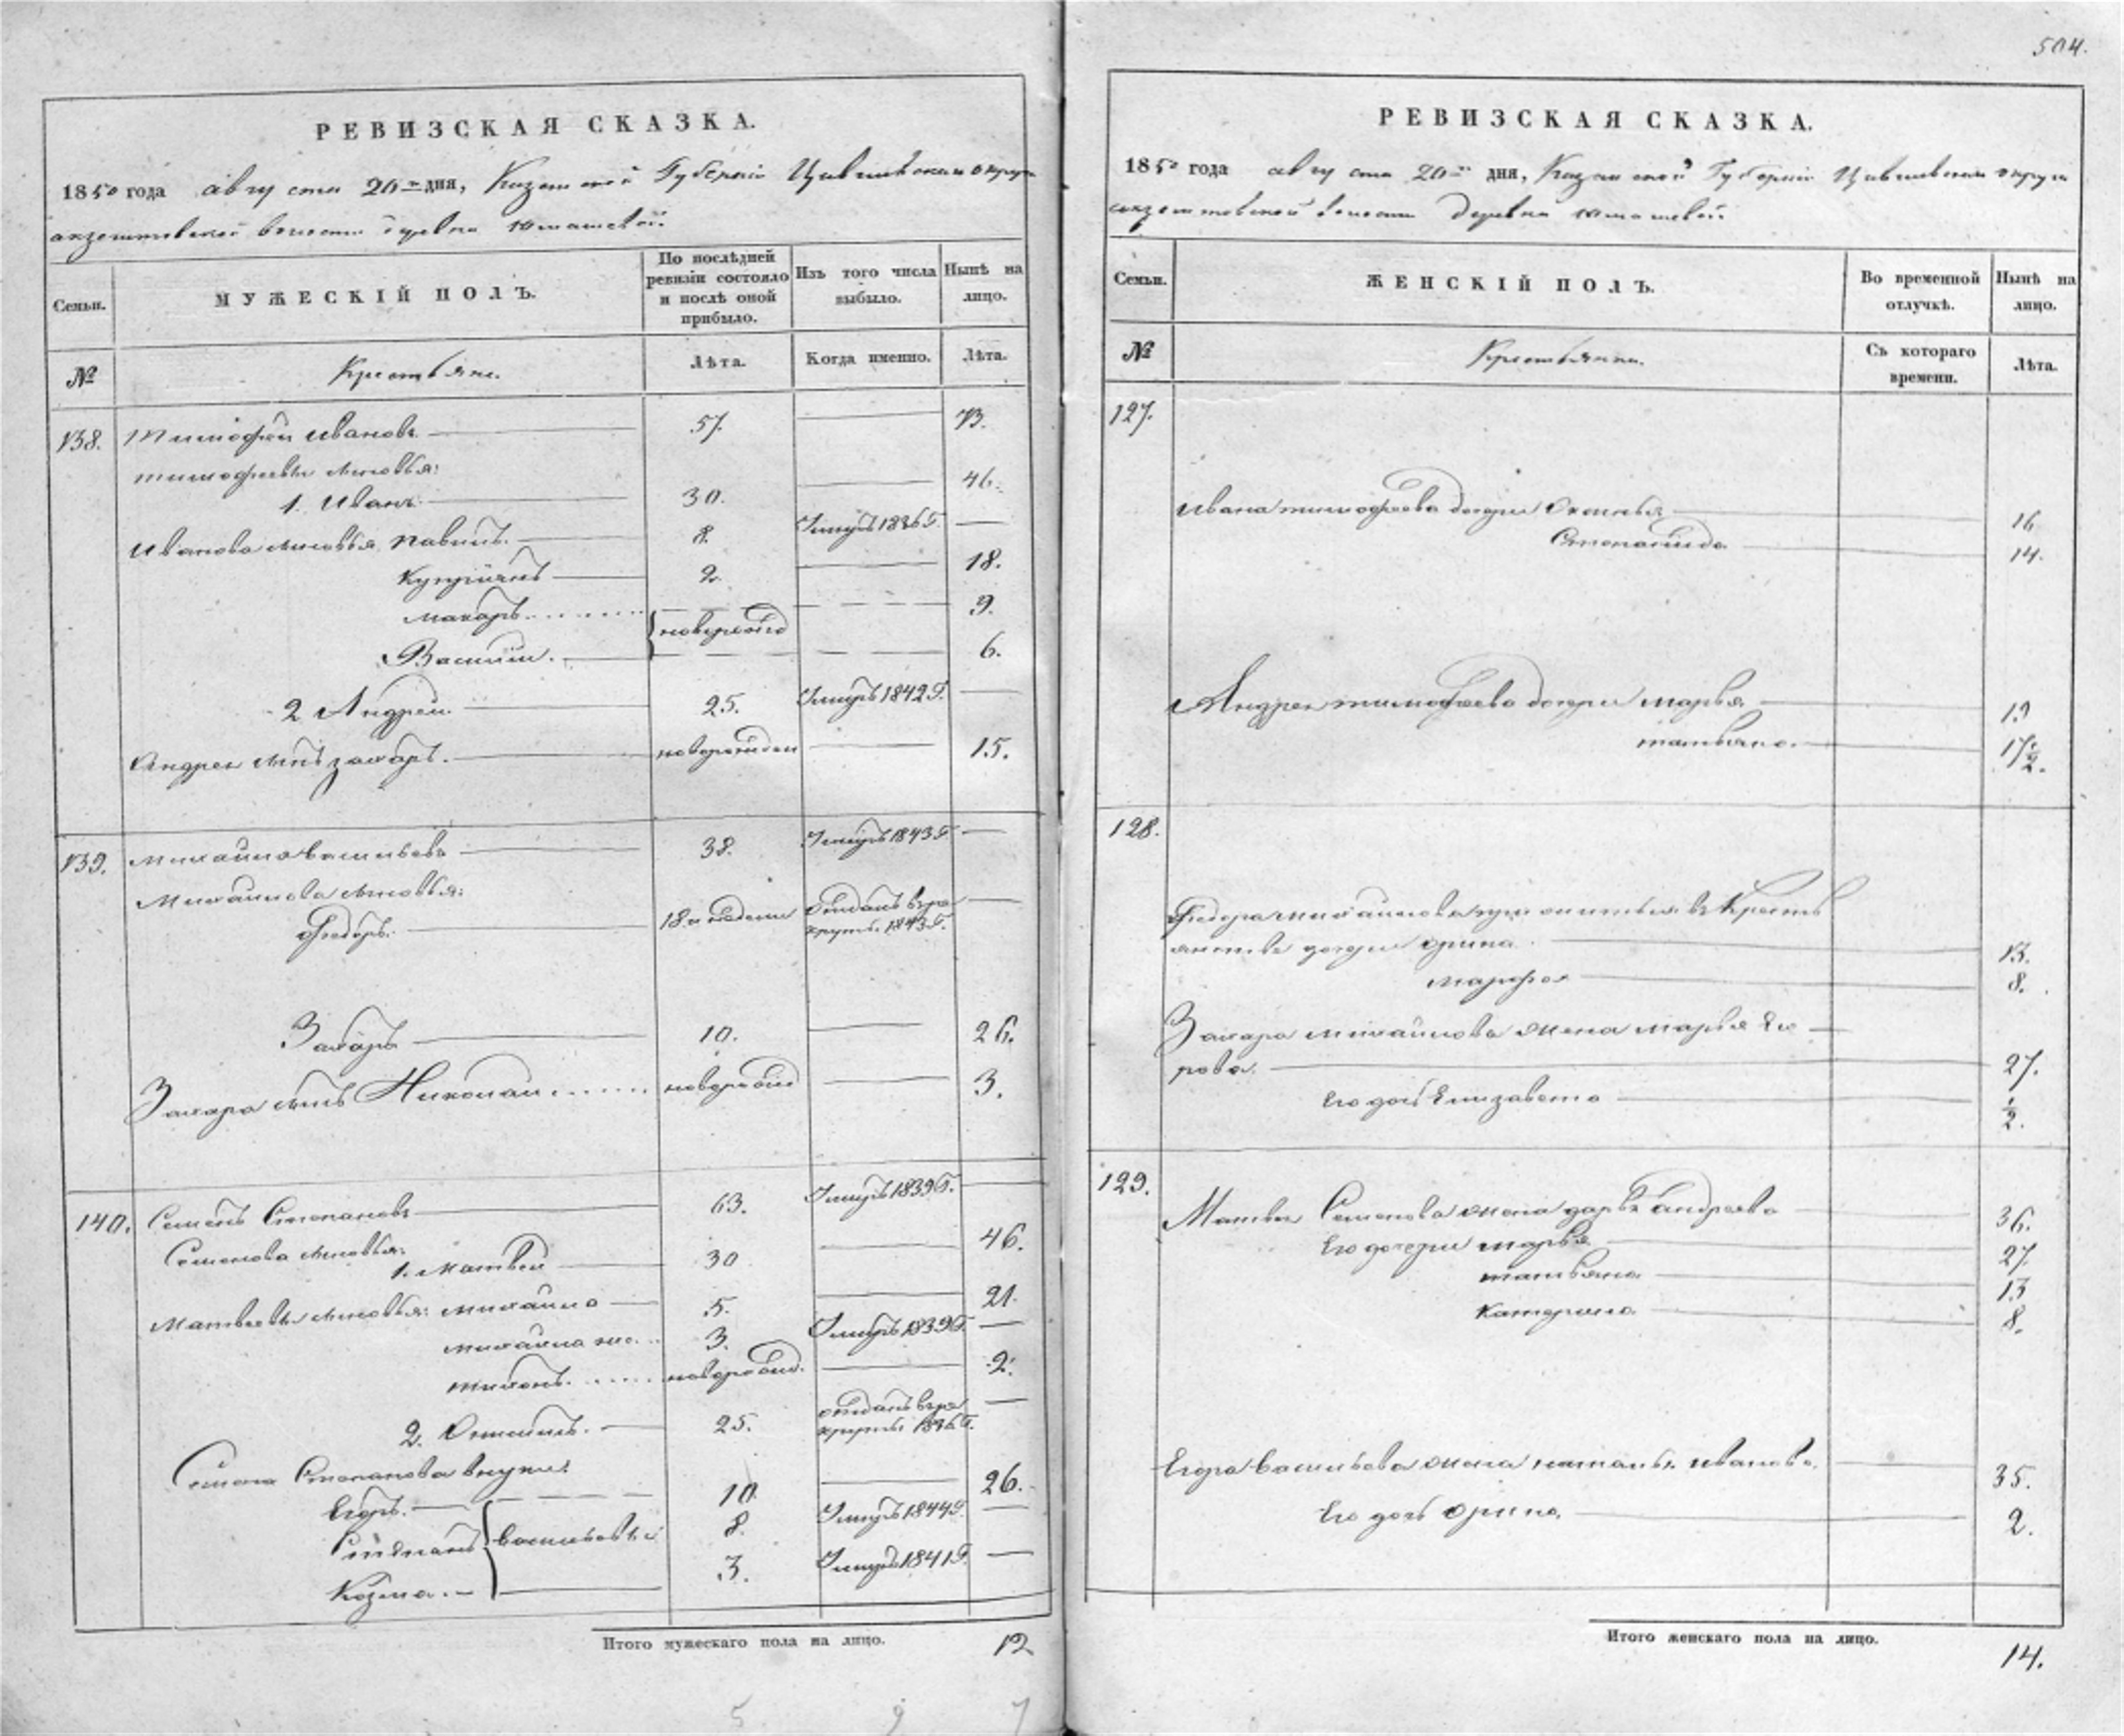 504.
РЕВИЗСКАЯ СКАЗКА.
1850 года августа 20 дня, Казанской Губерніи Цивильскаго округа
волости деревни Юташевой.
Семьи.
МУЖЕСКІЙ ПОЛЪ.
По послѣдней ревизіи состояло и послѣ оной прибыло.
Изъ того числа выбыло.
Нынѣ на лицо.
№
Крестьяне.
Лѣта.
Когда именно.
Лѣта.
138. Тимофей Ивановъ 57. 73.
Тимофеевы сыновья:
1. Иванъ 30. 46.
Ивановы сыновья 8. Умеръ 1836 Г.
Купріянъ 2. 18.
Макаръ новорожд 9.
Василій. 6.
2 Андрей 25. Умеръ 1842 Г.
Андрея сынъ Захаръ. новорожден 15.
139. Михайло Васильевъ 38. Умеръ 1843 Г.
Михайловы сыновья:
Федоръ. 18 отданъ въ рекруты 1843 Г.
Захаръ 10. 26.
Захара сынъ Николай новорожд 3.
140. Семенъ Степановъ 63. Умеръ 1839 Г.
Семеновы сыновья:
1. Матвей 30 46.
Матвеевы сыновья: Михайло 5. 21.
3. Умеръ 1839 Г.
Тихонъ новорожд. 2.
2. 25. отданъ въ рекруты 1836 Г.
Семена Степанова внуки:
Егоръ. 10 26.
Степанъ Васильевы 8. Умеръ 1844 Г.
Козма. 3. Умеръ 1841 Г.
Итого мужескаго пола на лицо. 12
5 9 7
РЕВИЗСКАЯ СКАЗКА.
1850 года августа 20 дня, Казанской Губерніи Цивильскаго округа
волости деревни Юташевой.
Семьи.
ЖЕНСКІЙ ПОЛЪ.
Во временной отлучкѣ.
Нынѣ на лицо.
№
Крестьянки.
Съ котораго времени.
Лѣта.
127.
Ивана Тимофеева дочери 16
Степанида 14.
Андрея Тимофеева дочери Марья 19
Татьяна. 17 1/2.
128.
Федора Михайлова въ крестьянстве дочери Орина 13.
Марфа 8.
Захара Михайлова жена Марья Егорова. 27.
Его дочь Елизавета 1/2.
129.
Матвея Семенова жена Дарья Андреева 36.
Его дочери Марья 27.
Татьяна 13
Катерина 8.
Егора Васильева жена Наталья Иванова. 35.
Его дочь Орина. 2.
Итого женскаго пола на лицо. 14.